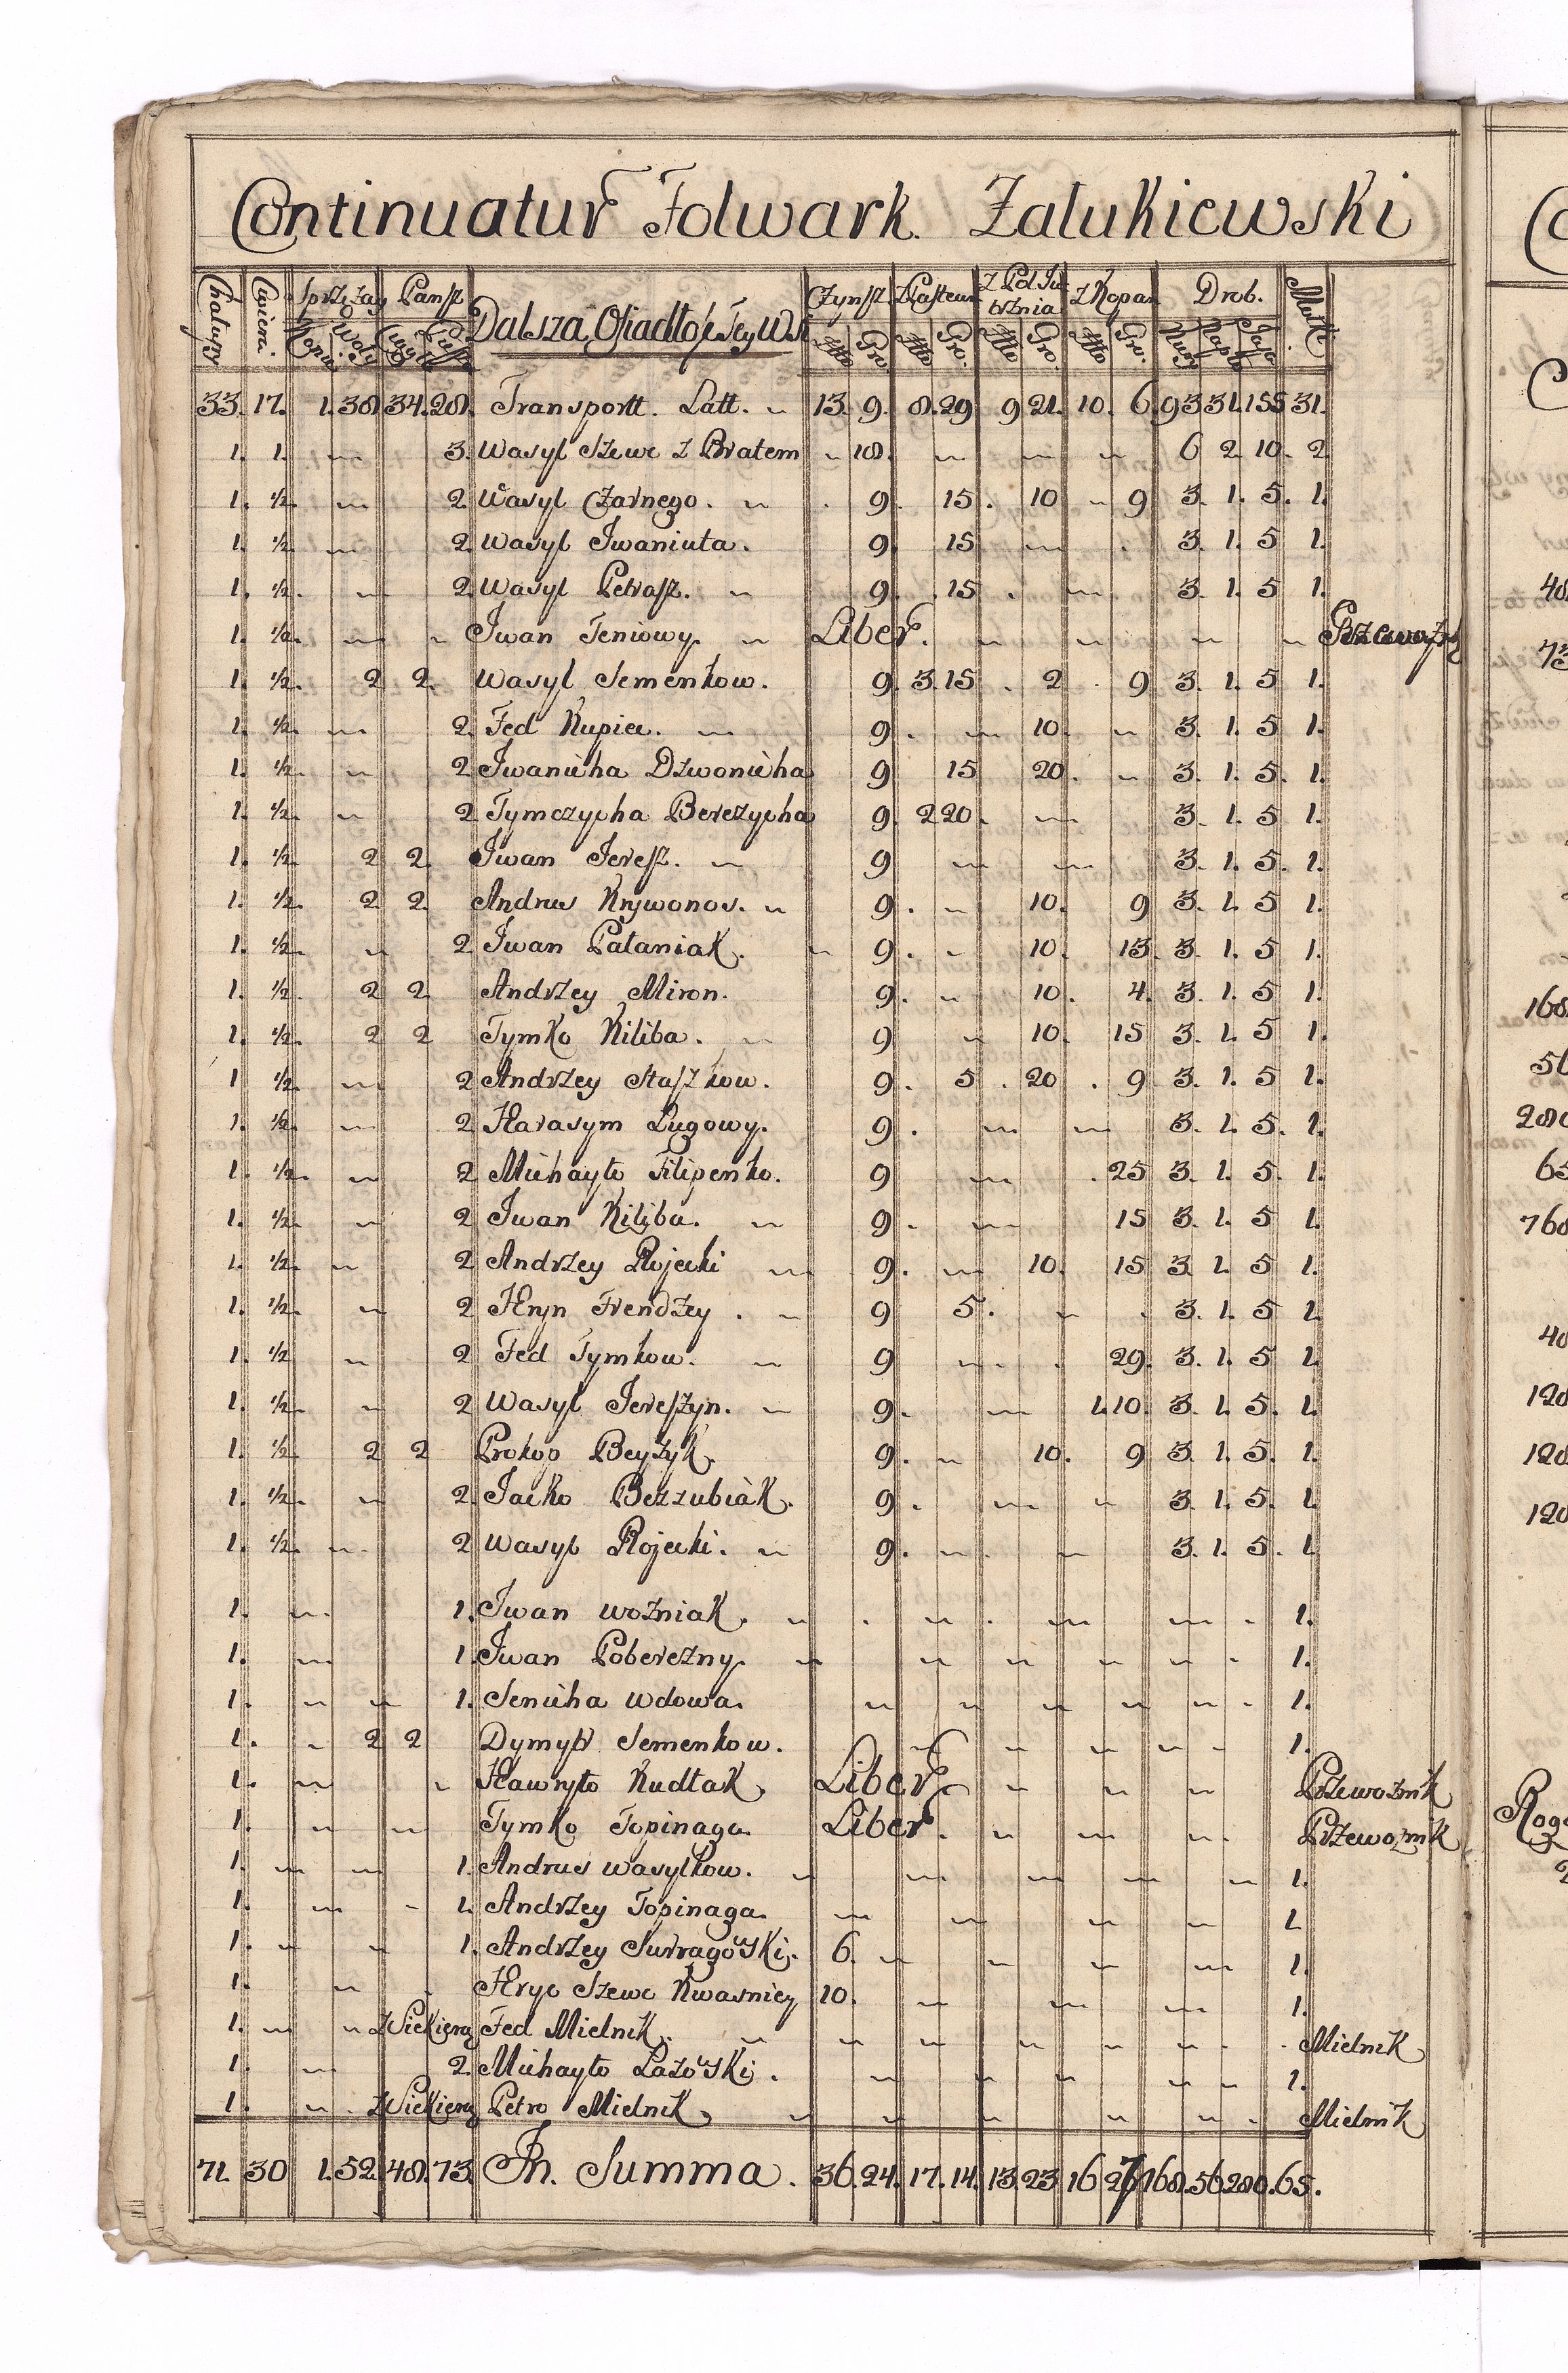 Continuatur Folwark. Zalukiewski
Chałupy Cwierci. Sprzężay Pansz. Dalsza Osiadłość tey Wsi Czynsz. Z Pastew. Z Pol Ju trznia Z Kopan Drob. Motki
Koni. Woły Ciągłe Piesze Złło Gro. Złło Gro. Złło Gro. Złło Gro. Kury Kapł. Jaja
33. 17. 1. 38. 34. 28. Transportt. Latt. 13. 9. 8. 29 9 21. 10. 6. 93 31. 155 31.
1. 1. 3. Wasyl Szewc z Bratem 18. 6 2. 10. 2
1. 1/2. 2. Wasyl Czarnego. 9. 15. 10 9 3. 1. 5. 1.
1. 1/2 2. Wasyl Iwaniuta. 9. 15 3. 1. 5 1.
1. 1/2. 2. Wasyl Petrasz. 9. 15. 3. 1. 5 1.
1. 1/2. Iwan Feniowy. Liber.
1. 1/2. 2 2. Wasyl Semenkow. 9. 3. 15. 2 9 3. 1. 5 1.
1. 1/2. 2. Fed Kupiec. 9. 10. 3. 1. 5 1.
1. 1/2. 2. Iwanicha Dzwonicha 9 15 20. 3. 1. 5. 1.
1. 1/2. 2. Tymczycha Berezycha 9. 2 20. 3. 1. 5 1.
1. 1/2. 2 2. Iwan Jeresz. 9 3. 1. 5. 1.
1. 1/2. 2 2. Andrus Krywonos. 9. 10. 9 3. 1. 5 1.
1. 1/2. 2 Iwan Pataniak. 9. 10. 13. 3. 1. 5 1.
1. 1/2. 2 2 Andrzey Miron. 9. 10. 4. 3. 1. 5 1.
1. 1/2. 2 2 Tymko Kiliba. 9 10. 15 3. 1. 5 1.
1 1/2. 2 Andrzey Staszkow. 9. 5. 20. 9 3. 1. 5 1.
1. 1/2. 2 Harasym Lugowy. 9. 3. 1. 5. 1.
1. 1/2. 2 Michayło Filipenko. 9 25 3. 1. 5. 1.
1. 1/2. 2 Iwan Kiliba. 9. 15 3. 1. 5 1.
1. 1/2. 2 Andrzey Rojecki 9. 10. 15 3 1. 5 1.
1. 1/2. 2 Hryn Frendzey. 9 5. 3. 1. 5 1.
1. 1/2 2 Fed Tymkow. 9 29. 3. 1. 5 1.
1. 1/2. 2 Wasyl Jereszyn. 9. 1. 10. 3. 1. 5. 1.
1. 1/2. 2 2 Prokop Beyzyk. 9. 10. 9 3. 1. 5. 1.
1. 1/2. 2. Jacko Bezzubiak. 9. 3. 1. 5. 1.
1. 1/2. 2 Wasyl Rojecki. 9. 3. 1. 5. 1
1. 1. Iwan Wozniak. 1.
1. 1. Iwan Poberezny. 1.
1. 1. Senicha Wdowa. 1.
1. 2 2 Dymytr Semenkow. 1.
1. Hawryło Kudłak. Liber Przewoznik
1. Tymko Topinaga. Liber. Przewoznik
1. 1. Andrus Wasylkow. 1.
1. 1. Andrzey Topinaga. 1.
1. 1. Andrzey Surragowski. 6. 1.
1. Hryc Szewc Kwasnicy 10. 1.
1. z Siekierą Fed Mielnik. Mielnik
1. 2. Michayło Lazowski. 1.
1. z Siekierą Petro Mielnik. Mielnik
71. 30 1. 52. 48. 73. In. Summa. 36. 24. 17. 14. 13. 23 16 27 168. 56. 280. 65.